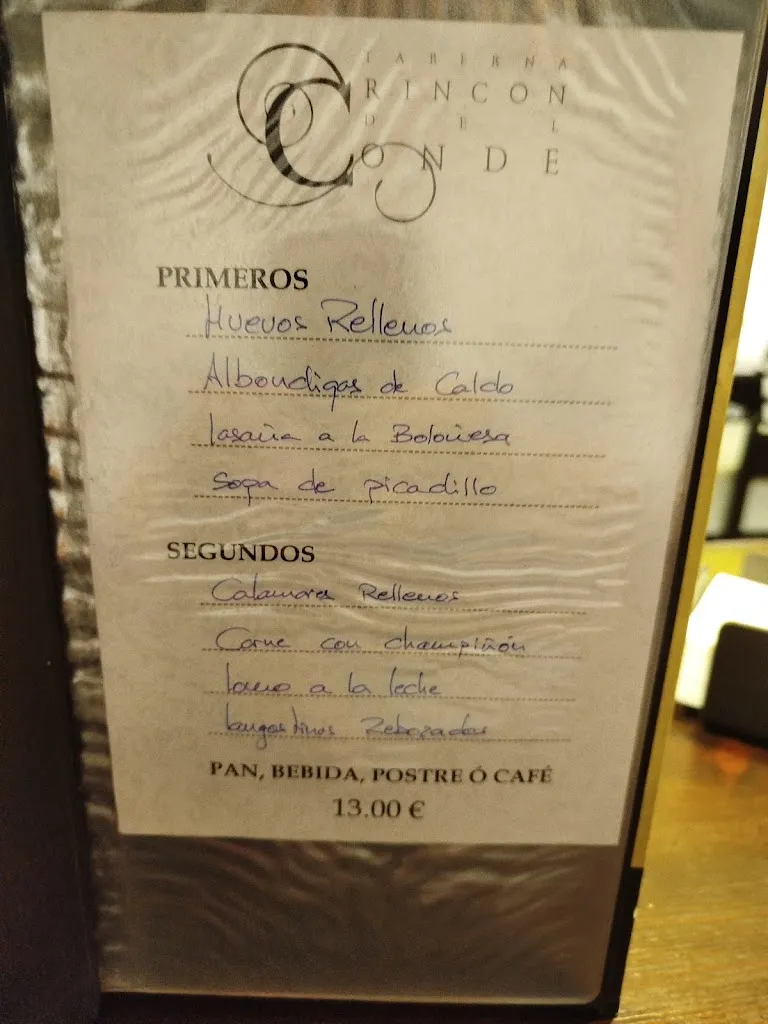 TABERNA
RINCON
DEL
CONDE
PRIMEROS
Huevos Rellenos
Albondigas de Caldo
lasaña a la Boloñesa
Sopa de picadillo
SEGUNDOS
Calamares Rellenos
Carne con champiñón
lomo a la leche
langostinos Rebozados
PAN, BEBIDA, POSTRE Ó CAFÉ
13.00 €